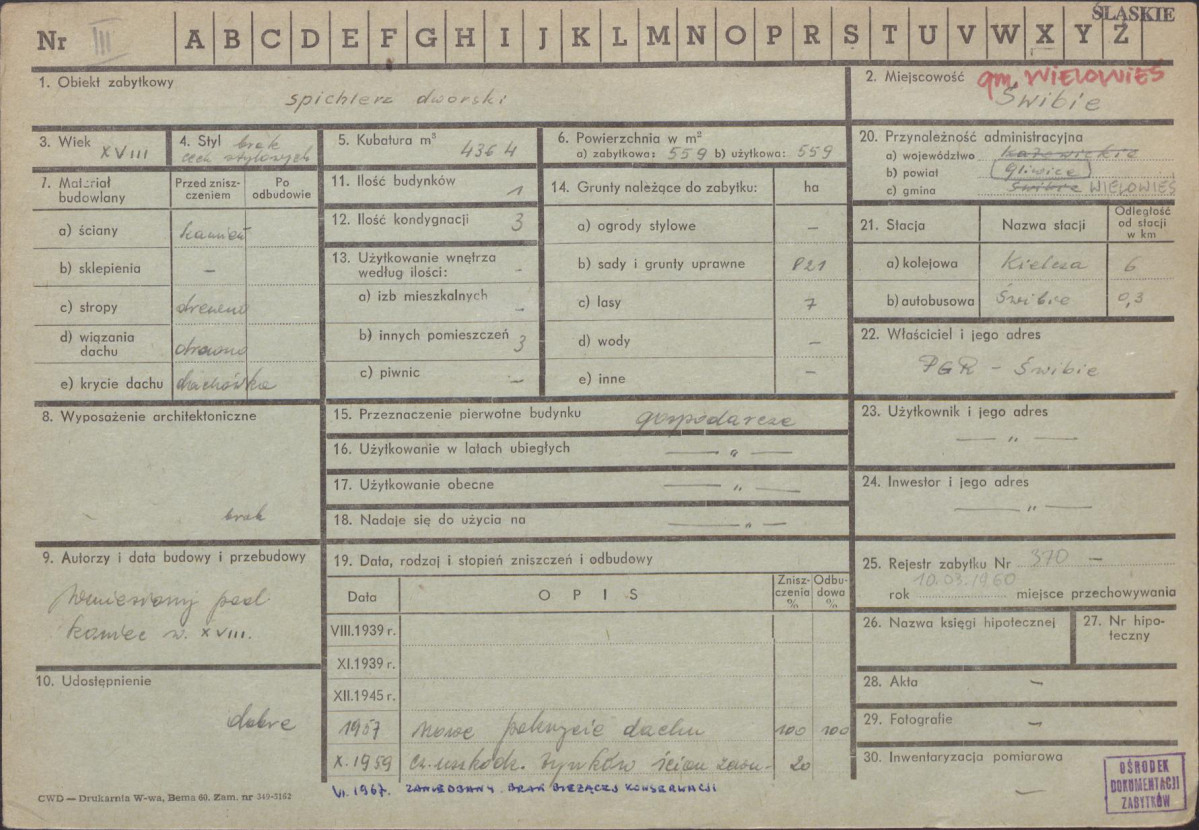 ŚLĄSKIE
Nr III A B C D E F G H I J K L M N O P R S T U V W X Y Z
1. Obiekt zabytkowy
spichlerz dworski
2. Miejscowość gm. WIELOWIEŚ
Świbie
3. Wiek
XVIII
4. Styl brak
cech stylowych
5. Kubatura m³
4364
6. Powierzchnia w m²
a) zabytkowa: 559 b) użytkowa: 559
7. Materiał budowlany
Przed zniszczeniem
Po odbudowie
a) ściany kamień
b) sklepienia —
c) stropy drewno
d) wiązania dachu drewno
e) krycie dachu dachówka
8. Wyposażenie architektoniczne
brak
9. Autorzy i data budowy i przebudowy
Wzniesiony pod
koniec w. XVIII.
10. Udostępnienie
dobre
11. Ilość budynków 1
12. Ilość kondygnacji 3
13. Użytkowanie wnętrza
według ilości: -
a) izb mieszkalnych -
b) innych pomieszczeń 3
c) piwnic —
14. Grunty należące do zabytku: ha
a) ogrody stylowe —
b) sady i grunty uprawne 821
c) lasy 7
d) wody —
e) inne —
15. Przeznaczenie pierwotne budynku gospodarcze
16. Użytkowanie w latach ubiegłych — „ —
17. Użytkowanie obecne — „ —
18. Nadaje się do użycia na — „ —
19. Data, rodzaj i stopień zniszczeń i odbudowy
Data
OPIS
Zniszczenia %
Odbudowa %
VIII.1939 r.
XI.1939 r.
XII.1945 r.
1957 nowe pokrycie dachu 100 100
X.1959 Cz. uszkodz. tynków ścian zewn. 20
VI.1967. ZANIEDBANY. BRAK BIEŻĄCEJ KONSERWACJI
20. Przynależność administracyjna
a) województwo katowickie
b) powiat Gliwice
c) gmina Świbie WIELOWIEŚ
21. Stacja
Nazwa stacji
Odległość od stacji w km
a) kolejowa Kielcza 6
b) autobusowa Świbie 0,3
22. Właściciel i jego adres
PGR - Świbie
23. Użytkownik i jego adres
— „ —
24. Inwestor i jego adres
— „ —
25. Rejestr zabytku Nr 370 —
10.03.1960
rok miejsce przechowywania
26. Nazwa księgi hipotecznej
27. Nr hipoteczny
28. Akta —
29. Fotografie —
30. Inwentaryzacja pomiarowa
—
OŚRODEK
DOKUMENTACJI
ZABYTKÓW
CWD — Drukarnia W-wa, Bema 60. Zam. nr 349-3162